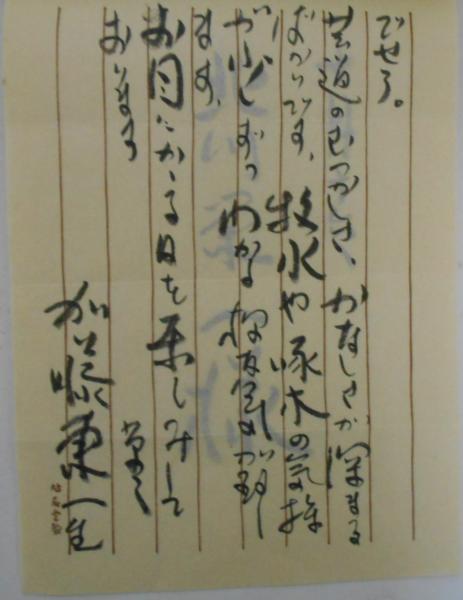 でせう。
芸道のむつかしさ、かなしさが深まる
ばかりです、牧水や啄木の気持
が少しずつわかる様な気が致し
ます。
お目にかゝる日を楽しみにして
おります
加藤東一